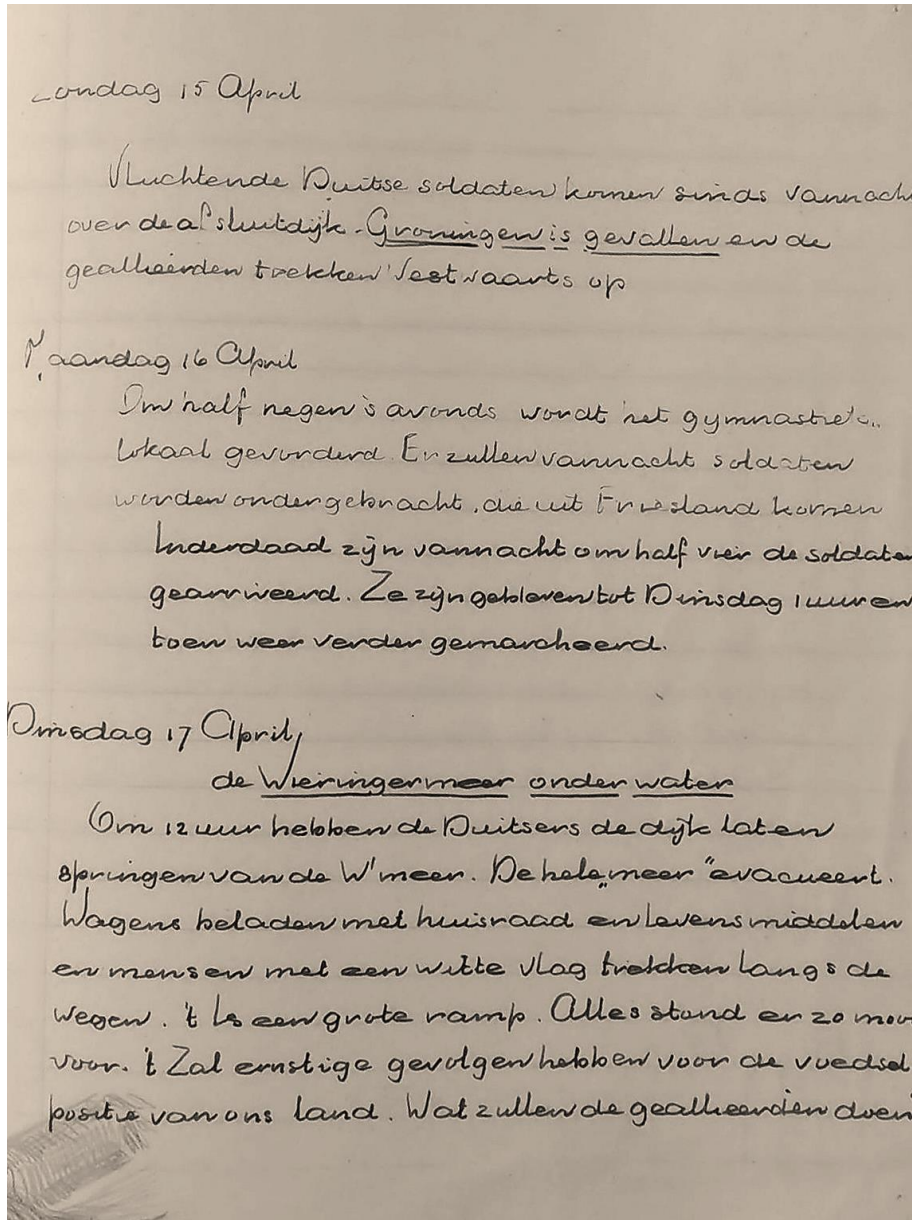 Zondag 15 April
Vluchtende Duitse soldaten komen sinds vannach
over de afsluitdijk - Groningen is gevallen en de
geallieerden trekken Westwaarts op
Maandag 16 April
Om half negen 's avonds wordt het gymnastiek..
lokaal gevorderd. Er zullen vannacht soldaten
worden ondergebracht, die uit Friesland komen
Inderdaad zijn vannacht om half vier de soldaten
gearriveerd. Ze zijn gebleven tot Dinsdag 1 uur en
toen weer verder gemarcheerd.
Dinsdag 17 April,
de Wieringermeer onder water
Om 12 uur hebben de Duitsers de dijk laten
springen van de W'meer. De hele „meer" evacueert.
Wagens beladen met huisraad en levensmiddelen
en mensen met een witte vlag trekken langs de
wegen. 't Is een grote ramp. Alles stond er zo moo
voor. 't Zal ernstige gevolgen hebben voor de voedsel
positie van ons land. Wat zullen de geallieerden doen